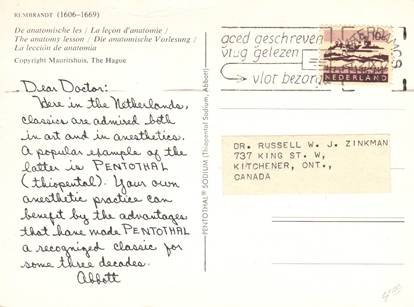 REMBRANDT (1606-1669)
De anatomische les / La leçon d'anatomie /
The anatomy lesson / Die anatomische Vorlesung /
La lección de anatomia
Copyright Mauritshuis, The Hague
Dear Doctor:
Here in the Netherlands,
classics are admired both
in art and in anesthetics.
A popular example of the
latter is PENTOTHAL
(thiopental). Your own
anesthetic practice can
benefit by the advantages
that have made PENTOTHAL
a recognized classic for
some three decades.
Abbott
PENTOTHAL® SODIUM (Thiopental Sodium, Abbott)
goed geschreven
vlug gelezen
vlot bezorgd
NEDERLAND
DR. RUSSELL W. J. ZINKMAN
737 KING ST. W,
KITCHENER, ONT.,
CANADA